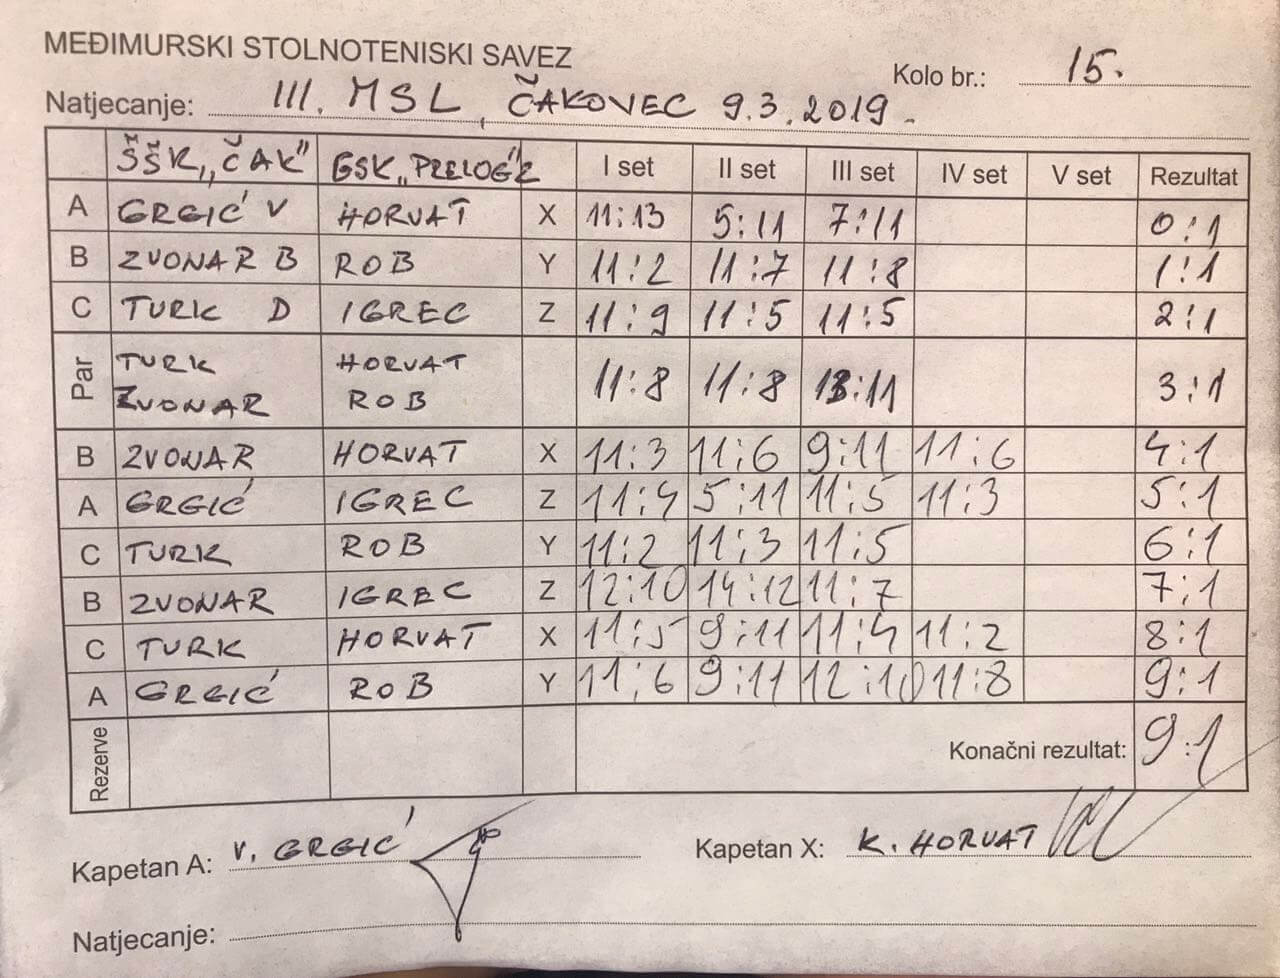 MEĐIMURSKI STOLNOTENISKI SAVEZ
Kolo br.: 15.
Natjecanje: III. MSL, ČAKOVEC 9.3.2019.
ŠŠK „ČAK" GSK „PRELOG" I set II set III set IV set V set Rezultat
A GRGIĆ V HORVAT X 11:13 5:11 7:11 0:1
B ZVONAR B ROB Y 11:2 11:7 11:8 1:1
C TURK D IGREC Z 11:9 11:5 11:5 2:1
Par TURK HORVAT 11:8 11:8 13:11 3:1
ZVONAR ROB
B ZVONAR HORVAT X 11:3 11:6 9:11 11:6 4:1
A GRGIĆ IGREC Z 11:4 5:11 11:5 11:3 5:1
C TURK ROB Y 11:2 11:3 11:5 6:1
B ZVONAR IGREC Z 12:10 14:12 11:7 7:1
C TURK HORVAT X 11:5 9:11 11:4 11:2 8:1
A GRGIĆ ROB Y 11:6 9:11 12:10 11:8 9:1
Rezerve Konačni rezultat: 9:1
Kapetan A: V. GRGIĆ Kapetan X: K. HORVAT
Natjecanje: